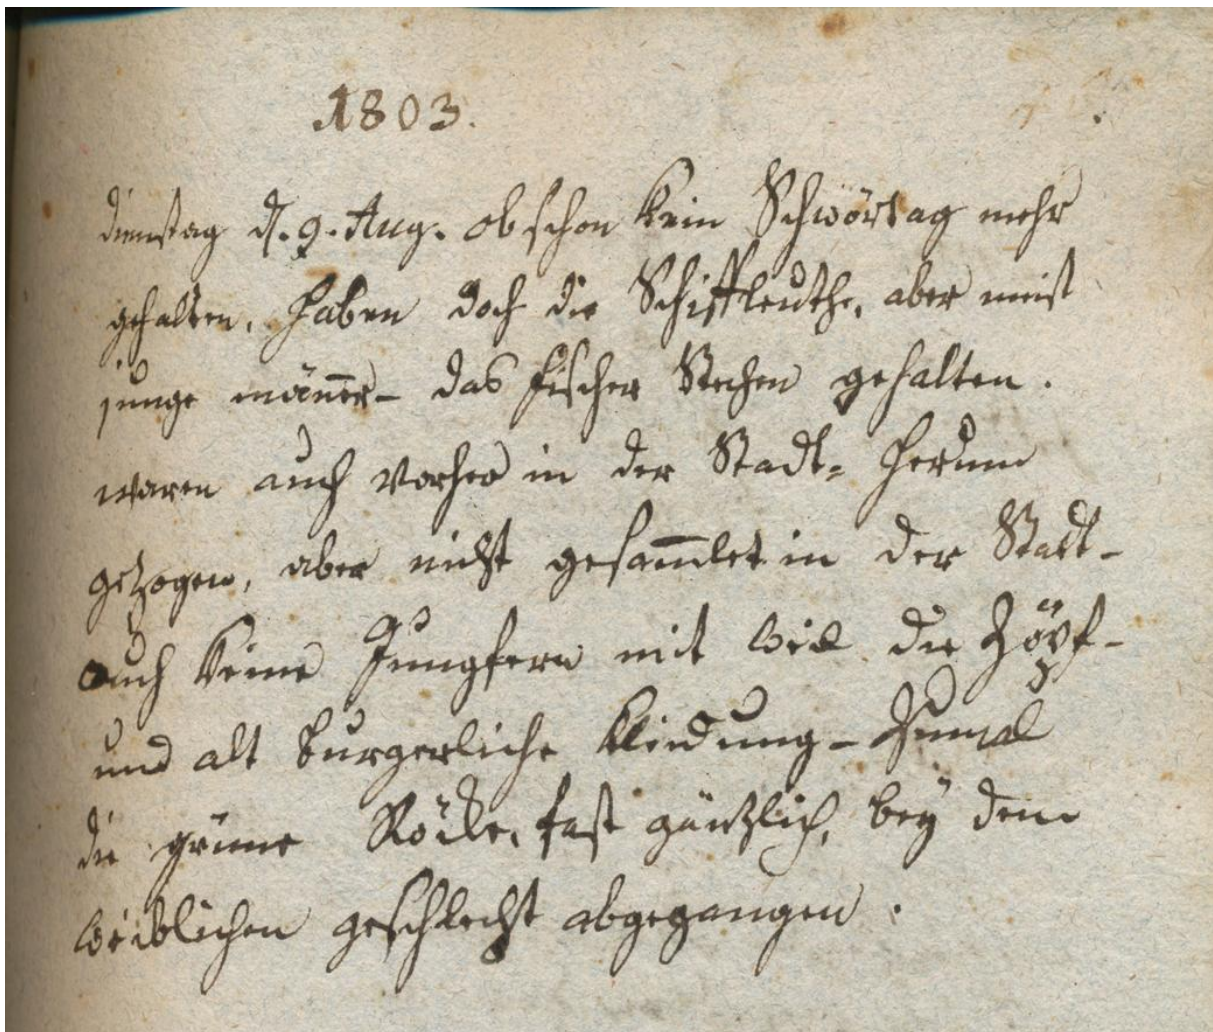 1803.
Dienstag d. 9. Aug. obschon kein Schwörtag mehr
gehalten, haben doch die Schiffleuthe, aber meist
junge mäñer - das fischer Stechen gehalten.
waren auch vorher in der Stadt- herum
gezogen, aber nicht gesam̄let in der Statt-
auch keine Jungfern mit weil die Zöpf-
und alt burgerliche Kleidung - zumal
die grüne Röcke, fast gänzlich, bey dem
weiblichen geschlecht abgegangen.